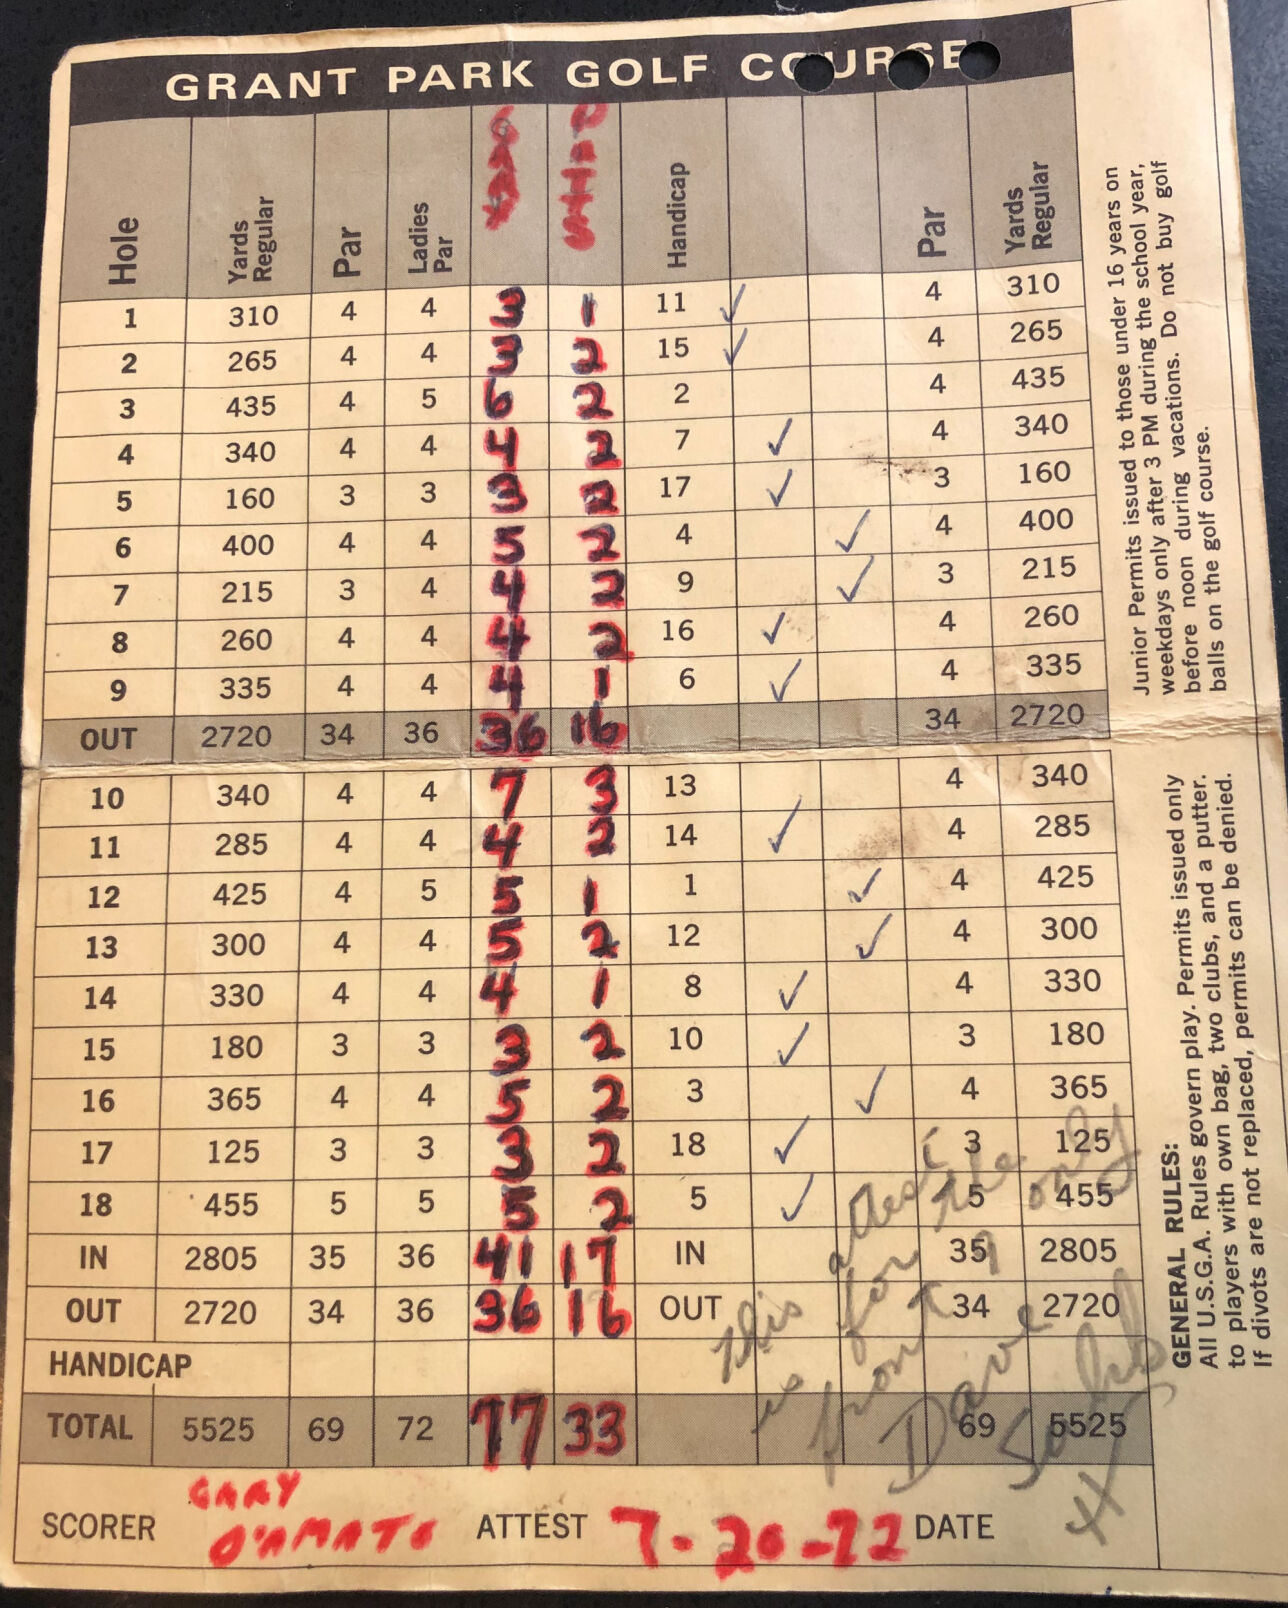 GRANT PARK GOLF COURSE
Hole Yards Regular Par Ladies Par Handicap Par Yards Regular
1 310 4 4 3 1 11 ✓ 4 310
2 265 4 4 3 2 15 ✓ 4 265
3 435 4 5 6 2 2 4 435
4 340 4 4 4 2 7 ✓ 4 340
5 160 3 3 3 2 17 ✓ 3 160
6 400 4 4 5 2 4 ✓ 4 400
7 215 3 4 4 2 9 ✓ 3 215
8 260 4 4 4 2 16 ✓ 4 260
9 335 4 4 4 1 6 ✓ 4 335
OUT 2720 34 36 36 16 34 2720
10 340 4 4 7 3 13 4 340
11 285 4 4 4 2 14 ✓ 4 285
12 425 4 5 5 1 1 ✓ 4 425
13 300 4 4 5 2 12 ✓ 4 300
14 330 4 4 4 1 8 ✓ 4 330
15 180 3 3 3 2 10 ✓ 3 180
16 365 4 4 5 2 3 ✓ 4 365
17 125 3 3 3 2 18 ✓ 3 125
18 455 5 5 5 2 5 ✓ 5 455
IN 2805 35 36 41 17 IN 35 2805
OUT 2720 34 36 36 16 OUT 34 2720
HANDICAP
TOTAL 5525 69 72 77 33 69 5525
SCORER GARY D'AMATO ATTEST 7-20-72 DATE
This attest
is for the only
front 9
Dave
Junior Permits issued to those under 16 years on
weekdays only after 3 PM during the school year,
before noon during vacations. Do not buy golf
balls on the golf course.
GENERAL RULES:
All U.S.G.A. Rules govern play. Permits issued only
to players with own bag, two clubs, and a putter.
If divots are not replaced, permits can be denied.